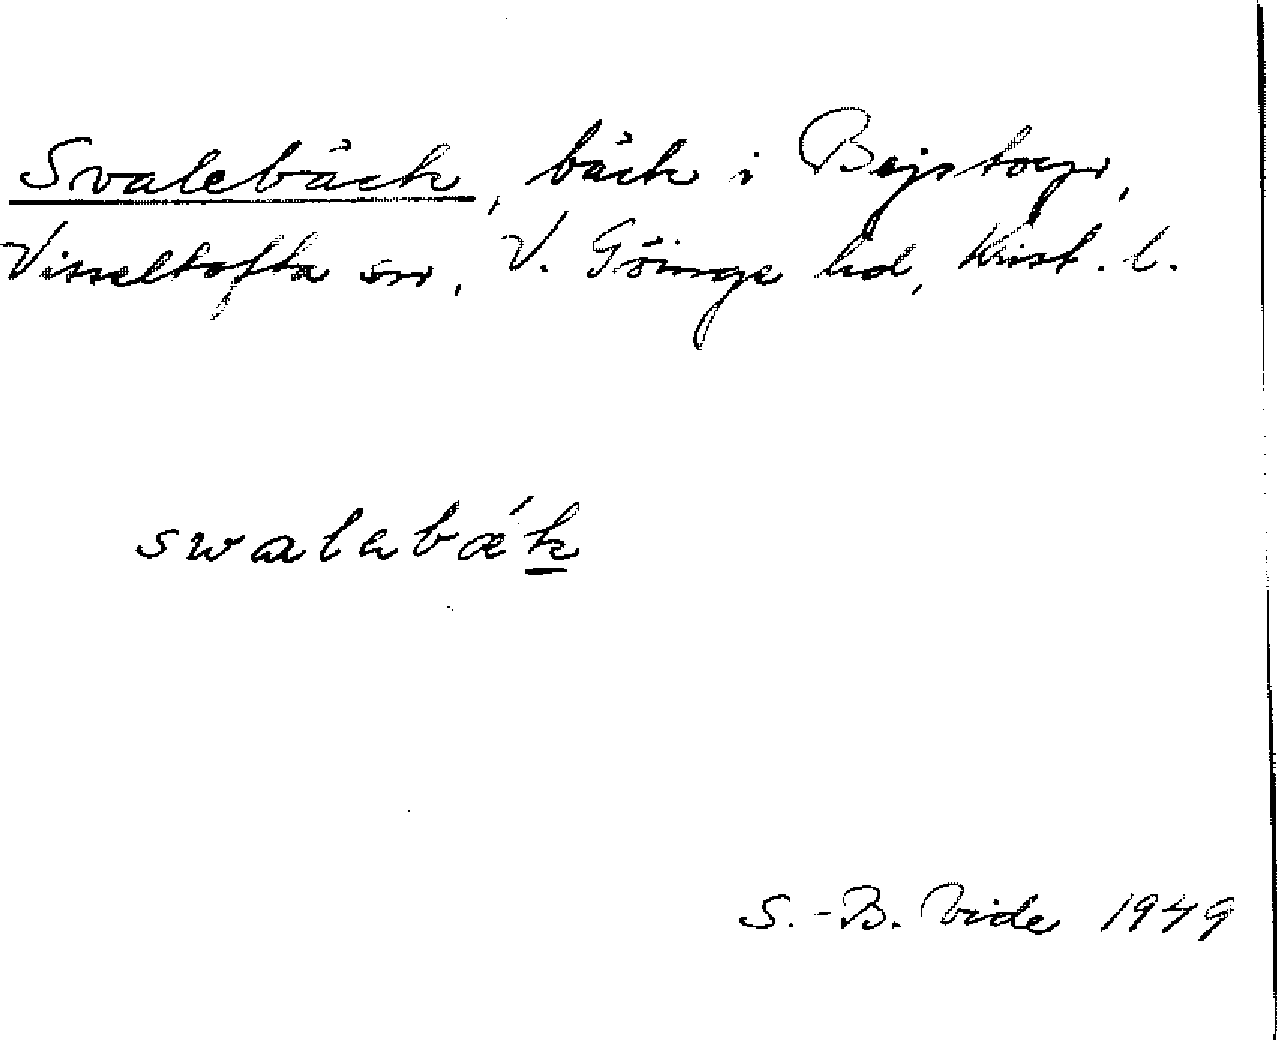 Svalebäck, bäck i Bejstorp,
Visseltofta sn, V. Göinge hd, Krist. l.
swalabä́k
S.-B. Vide 1949